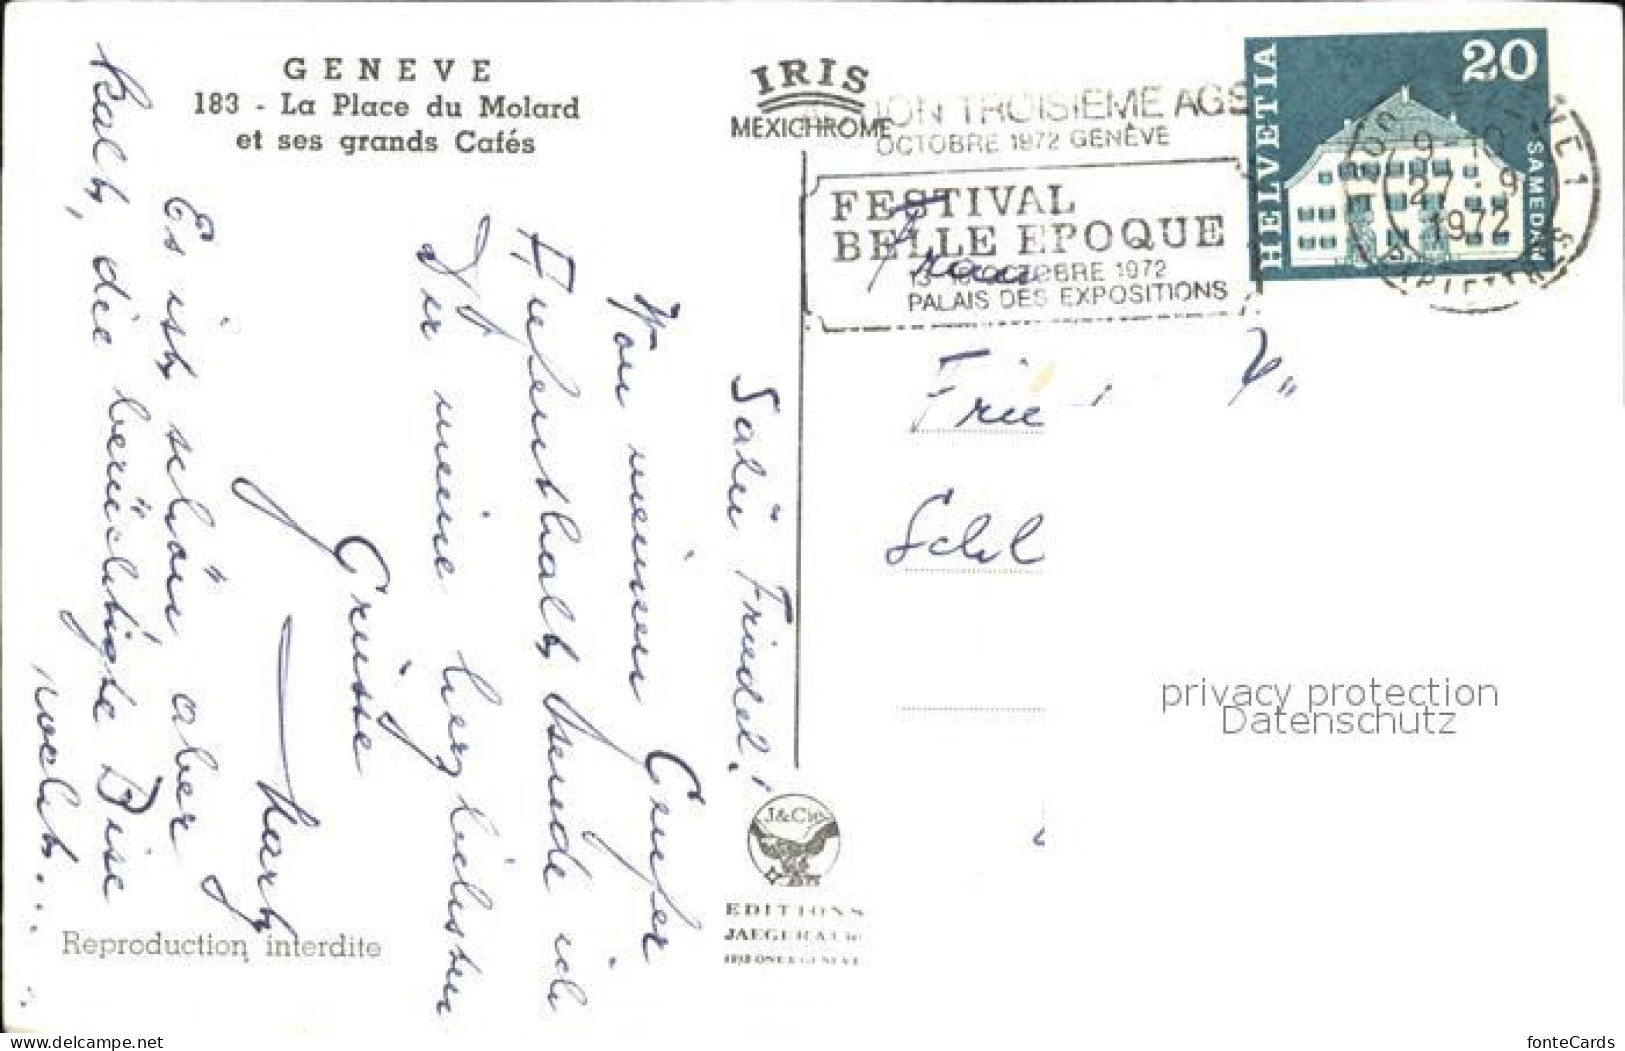 GENEVE
183 - La Place du Molard
et ses grands Cafés
IRIS
MEXICHROME
ION TROISIEME AGE
OCTOBRE 1972 GENÈVE
FESTIVAL
BELLE EPOQUE
OCTOBRE 1972
PALAIS DES EXPOSITIONS
HELVETIA
20
SAMEDAN
9-10
27.9
1972
Frau
Salü Friedel!
Von meinem Genfer
Aufenthalt sende ich
Dir meine herzlichsten
Grüsse
Es ist schön aber
kalt, die berüchtigte Bise
weht...
J&Cie
EDITIONS
JAEGER & Cie
Reproduction interdite
privacy protection
Datenschutz
www.delcampe.net
fonteCards